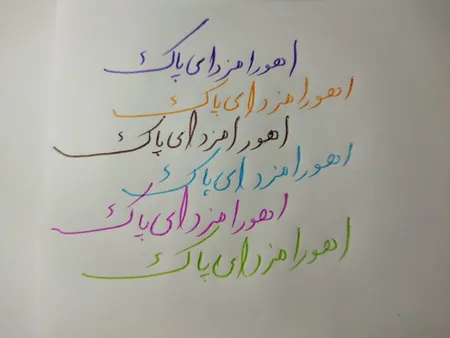 اهورا مزدای پاک
اهورا مزدای پاک
اهورا مزدای پاک
اهورا مزدای پاک
اهورا مزدای پاک
اهورا مزدای پاک